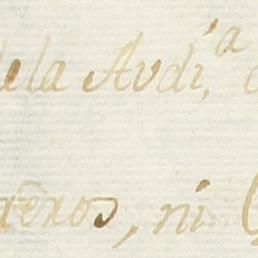 dela Audi.ª
geros, ni